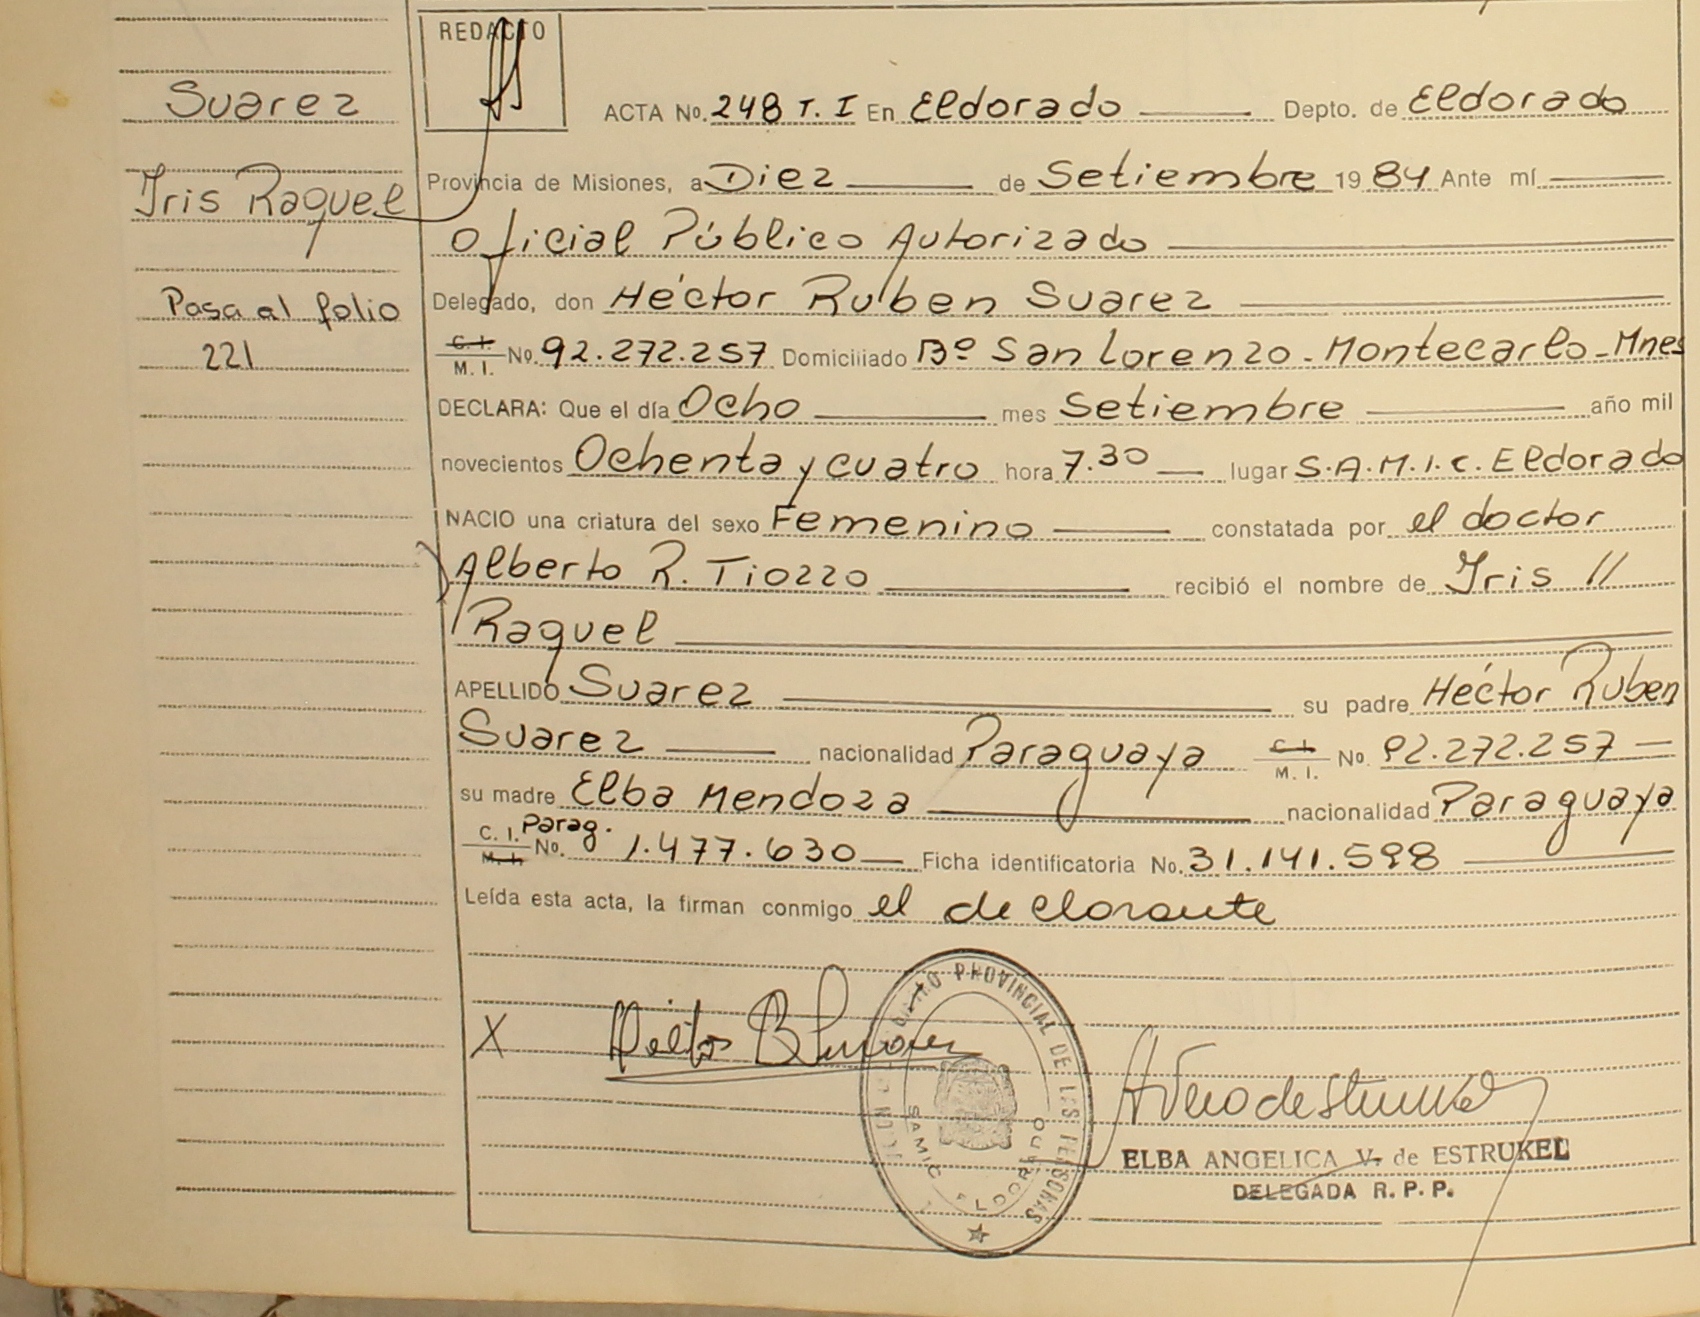 Suarez
Iris Raquel
Pasa al folio
221
REDACTO
ACTA No. 248 T. I En Eldorado Depto. de Eldorado
Provincia de Misiones, a Diez de Setiembre 1984 Ante mí
Oficial Público Autorizado
Delegado, don Héctor Ruben Suarez
C. I.
M. I. No. 92.272.257 Domiciliado Bº San Lorenzo - Montecarlo - Mnes
DECLARA: Que el día Ocho mes Setiembre año mil
novecientos Ochenta y cuatro hora 7.30 lugar S.A.M.I.C. Eldorado
NACIO una criatura del sexo Femenino constatada por el doctor
Alberto R. Tiozzo recibió el nombre de Iris //
Raquel
APELLIDO Suarez su padre Héctor Ruben
Suarez nacionalidad Paraguaya C. I. M. I. No. 92.272.257
su madre Elba Mendoza nacionalidad Paraguaya
C. I. Parag.
M. I. No. 1.477.630 Ficha identificatoria No. 31.141.598
Leída esta acta, la firman conmigo el declarante
X
PROVINCIAL DE LAS PERSONAS
SAMIC ELDORADO
ELBA ANGELICA V. de ESTRUKEL
DELEGADA R. P. P.